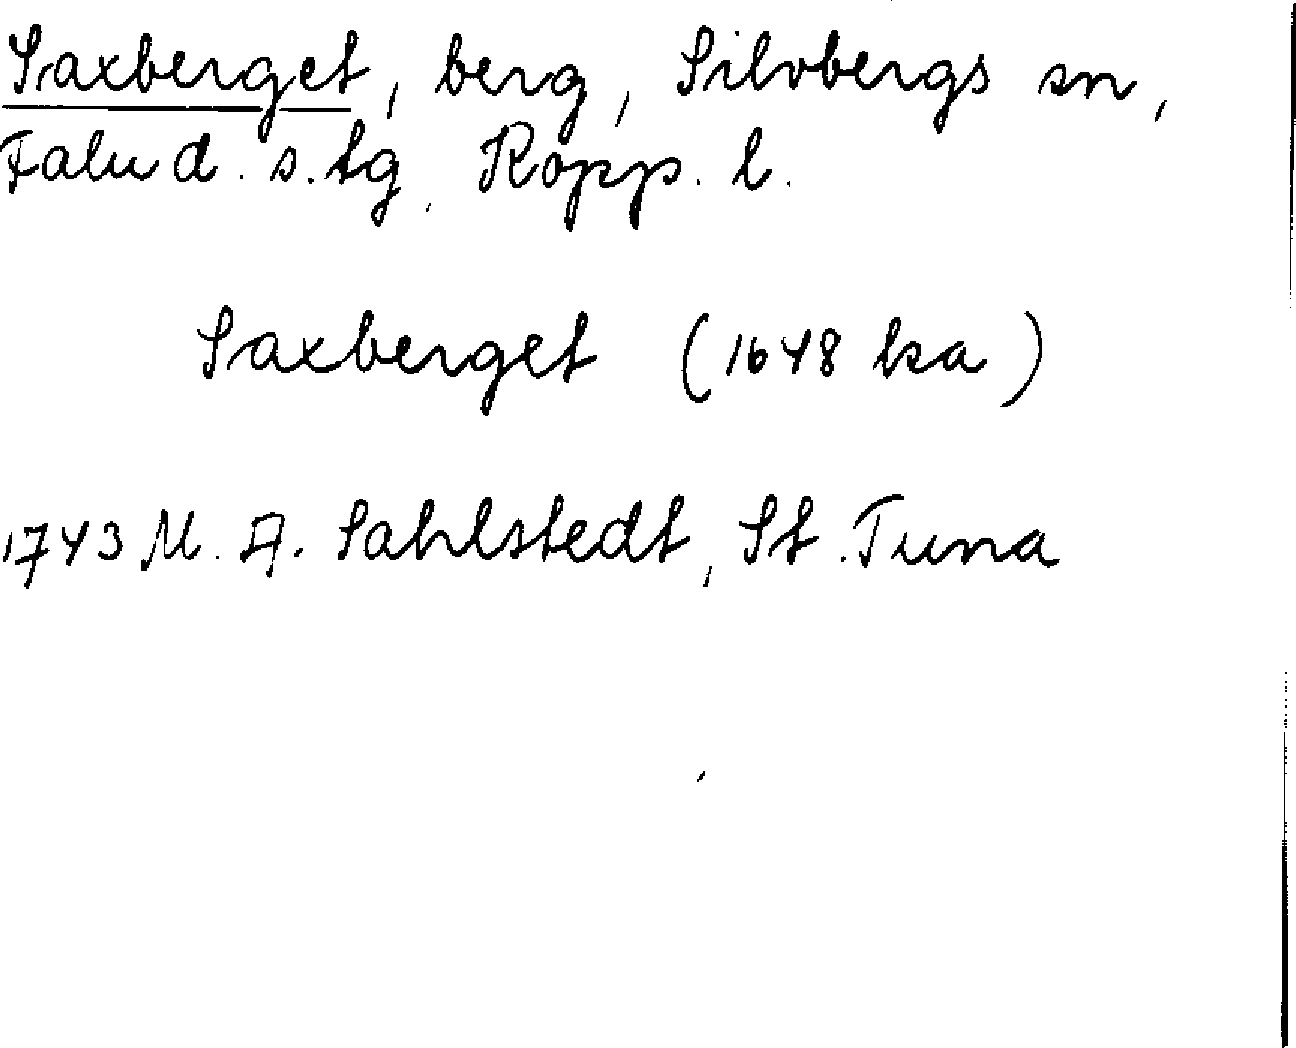 Saxberget, berg, Silvbergs sn,
Falu d. s. tg. Kopp. l.
Saxberget (1648 lsa)
1743 M. A. Sahlstedt, St. Tuna